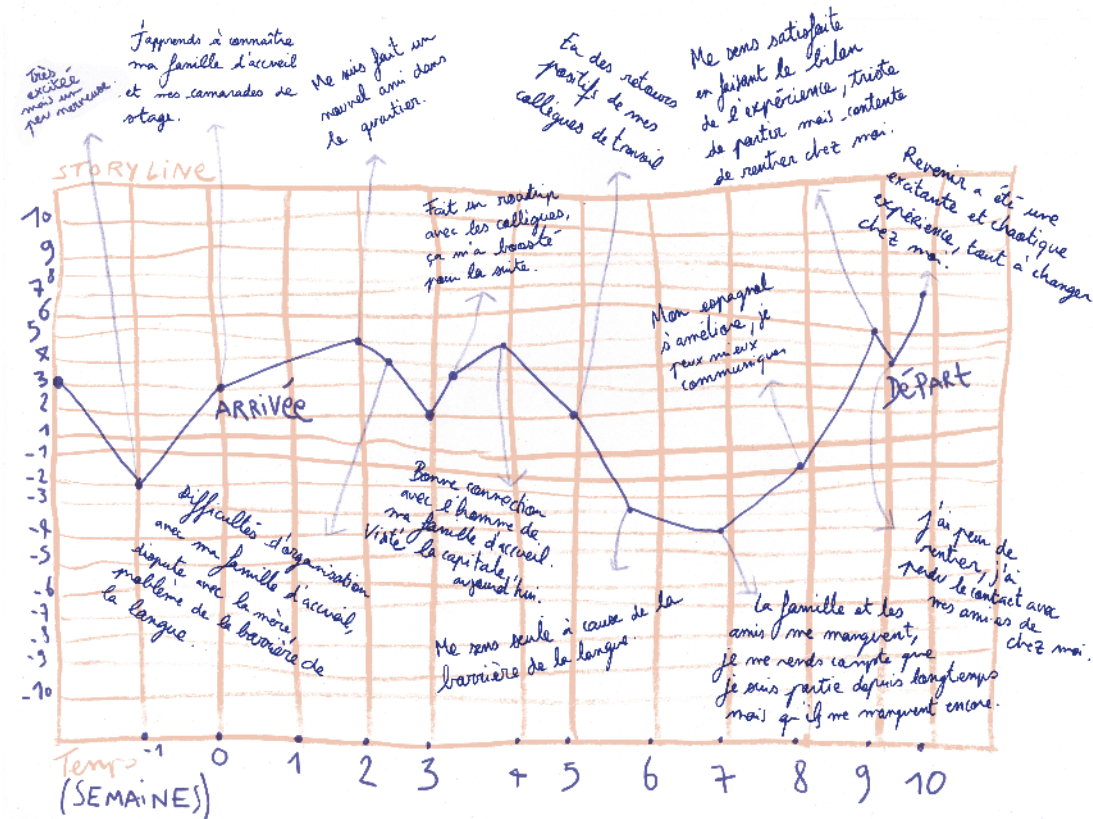 Très
excitée
mais un
peu nerveuse.
J'apprends à connaître
ma famille d'accueil
et mes camarades de
stage.
Me suis fait un
nouvel ami dans
le quartier.
Eu des retours
positifs de mes
collègues de travail
Me sens satisfaite
en faisant le bilan
de l'expérience, triste
de partir mais contente
de rentrer chez moi.
STORYLINE
Fait un roadtrip
avec les collègues,
ça m'a boosté
pour la suite.
Revenir a été une
excitante et chaotique
expérience, tout a changer
chez moi.
Mon espagnol
s'améliore, je
peux mieux
communiquer
10
9
8
7
6
5
4
3
2
1
-1
-2
-3
-4
-5
-6
-7
-8
-9
-10
ARRIVÉE
DÉPART
Difficultés d'organisation
avec ma famille d'accueil,
dispute avec la mère,
problème de la barrière de
la langue.
Bonne connection
avec l'homme de
ma famille d'accueil.
Visité la capitale
aujourd'hui.
Me sens seule à cause de la
barrière de la langue.
La famille et les
amis me manquent,
je me rends compte que
je suis partie depuis longtemps
mais qu'ils me manquent encore.
J'ai peur de
rentrer, j'ai
perdu le contact avec
mes ami·es de
chez moi.
Temps
(SEMAINES)
-1 0 1 2 3 4 5 6 7 8 9 10